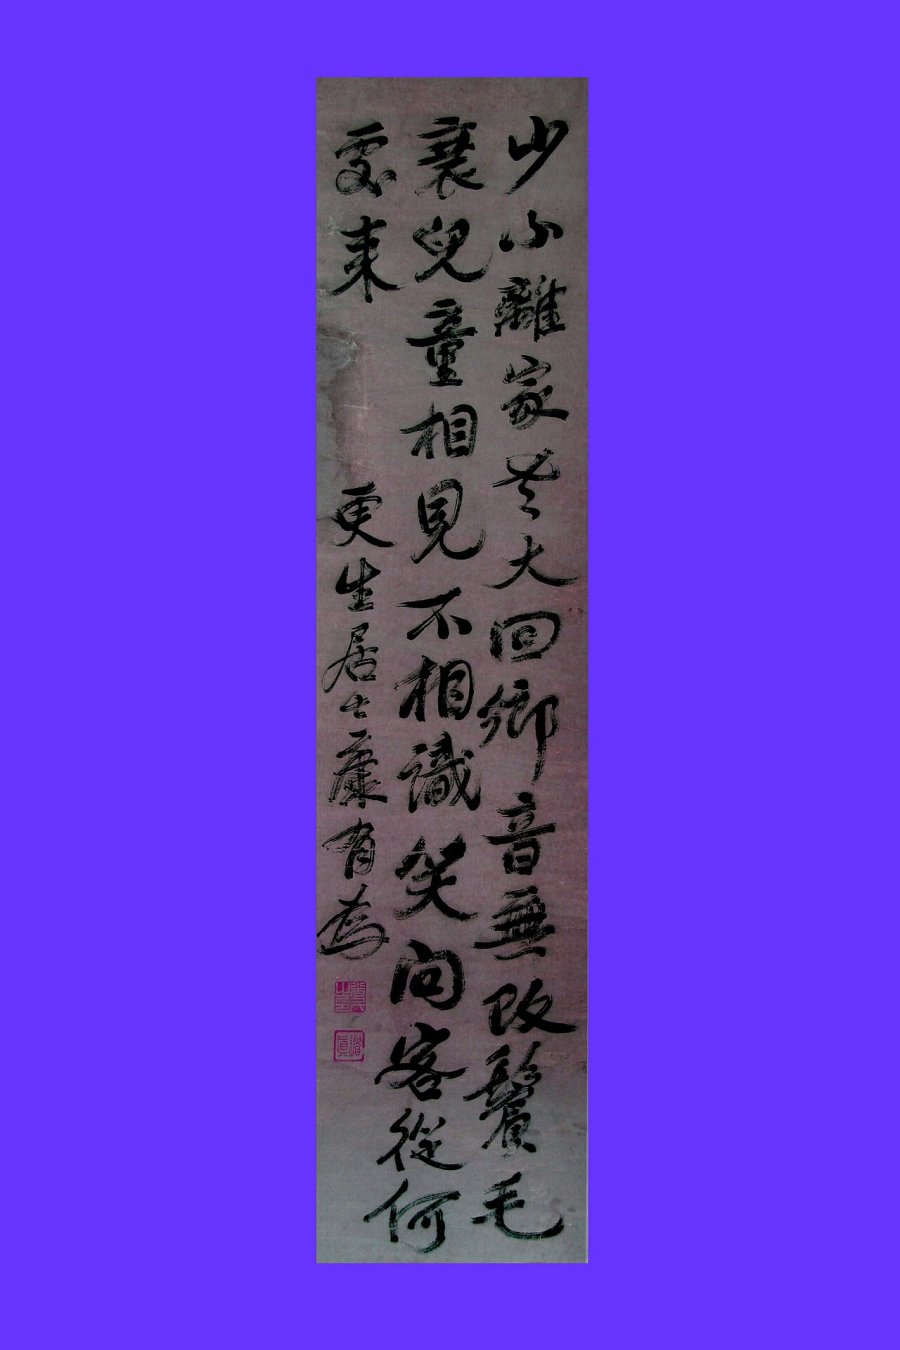 少小離家老大回鄉音無改鬢毛
衰兒童相見不相識笑問客從何
處来　更生居士康有為